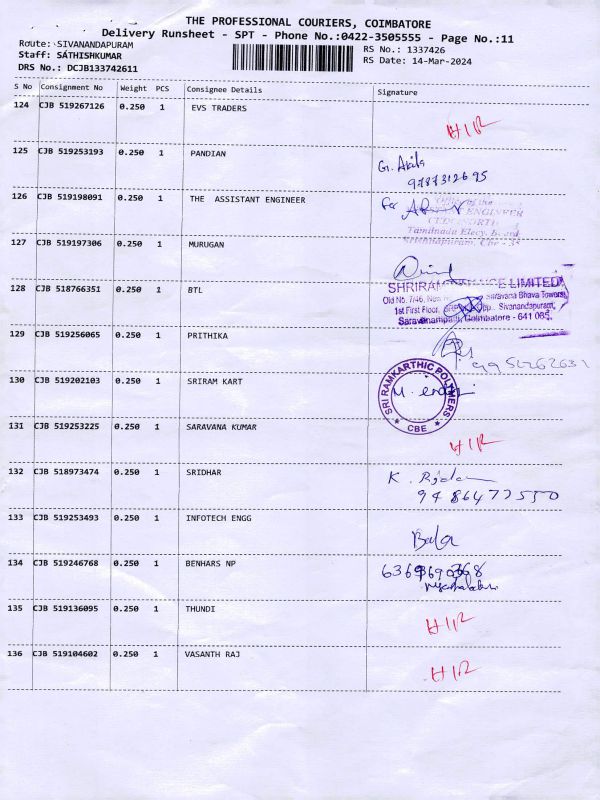 THE PROFESSIONAL COURIERS, COIMBATORE
Delivery Runsheet - SPT - Phone No.:0422-3505555 - Page No.:11
Route: SIVANANDAPURAM
RS No.: 1337426
Staff: SATHISHKUMAR
RS Date: 14-Mar-2024
DRS No.: DCJB133742611
S No Consignment No Weight PCS Consignee Details Signature
124 CJB 519267126 0.250 1 EVS TRADERS
HIR
125 CJB 519253193 0.250 1 PANDIAN
G. Akila
9787312695
126 CJB 519198091 0.250 1 THE ASSISTANT ENGINEER
For
Office of the
ENGINEER
Tamilnadu Elecy. Board
127 CJB 519197306 0.250 1 MURUGAN
128 CJB 518766351 0.250 1 BTL
SHRIRAM LIMITED
Old No. 7/46, Saravana Bhava Towers,
1st First Floor, Sivanandapuram,
Saravanampatti, Coimbatore - 641 035.
129 CJB 519256065 0.250 1 PRITHIKA
130 CJB 519202103 0.250 1 SRIRAM KART
SRI RAMKARTHIC POLYMERS
CBE
131 CJB 519253225 0.250 1 SARAVANA KUMAR
HIR
132 CJB 518973474 0.250 1 SRIDHAR
K.
9486477550
133 CJB 519253493 0.250 1 INFOTECH ENGG
Bala
134 CJB 519246768 0.250 1 BENHARS NP
135 CJB 519136095 0.250 1 THUNDI
HIR
136 CJB 519104602 0.250 1 VASANTH RAJ
HIR